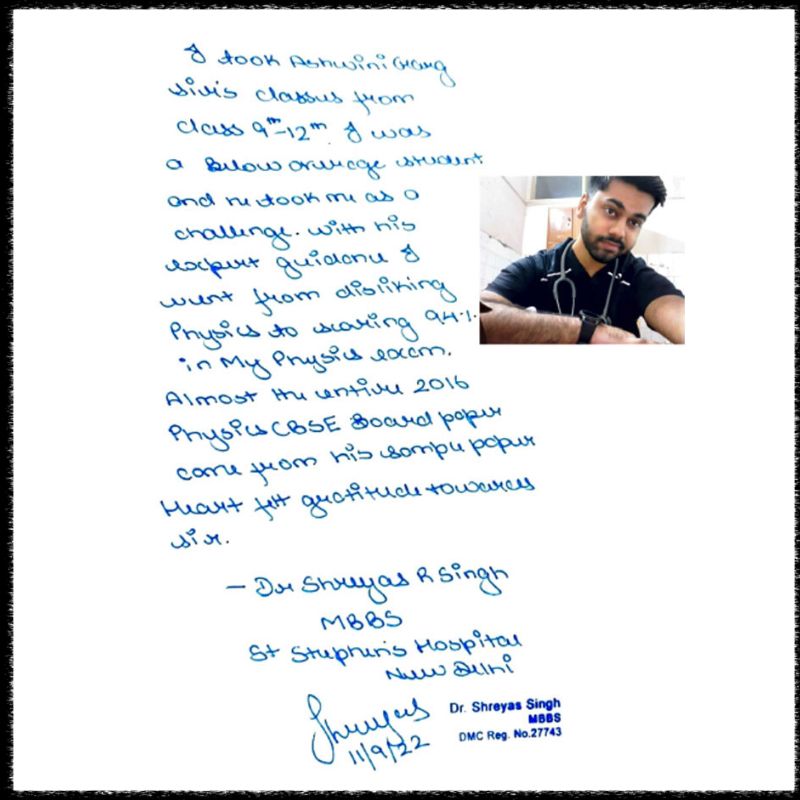 I took Ashwini Garg
sir's classes from
class 9th-12th. I was
a Below average student
and he took me as a
challenge. With his
expert guidance I
went from disliking
Physics to scoring 94%.
in My Physics exam.
Almost the entire 2016
Physics CBSE Board paper
came from his sample paper
Heart felt gratitude towards
sir.
- Dr Shreyas R Singh
MBBS
St Stephen's Hospital
New Delhi
Shreyas
11/9/22
Dr. Shreyas Singh
MBBS
DMC Reg. No.27743